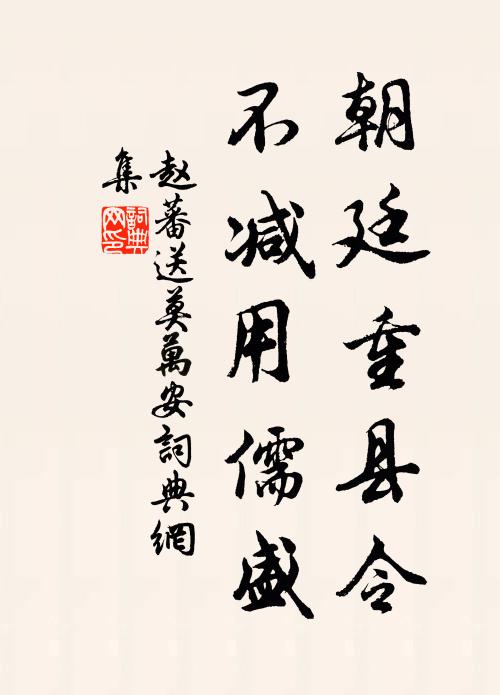 朝廷重县令
不减用儒盛
赵蕃送莫萬安詞典網
集
詞典网印